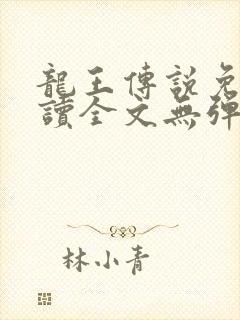 龍王傳說免
讀全文無彈
林小青